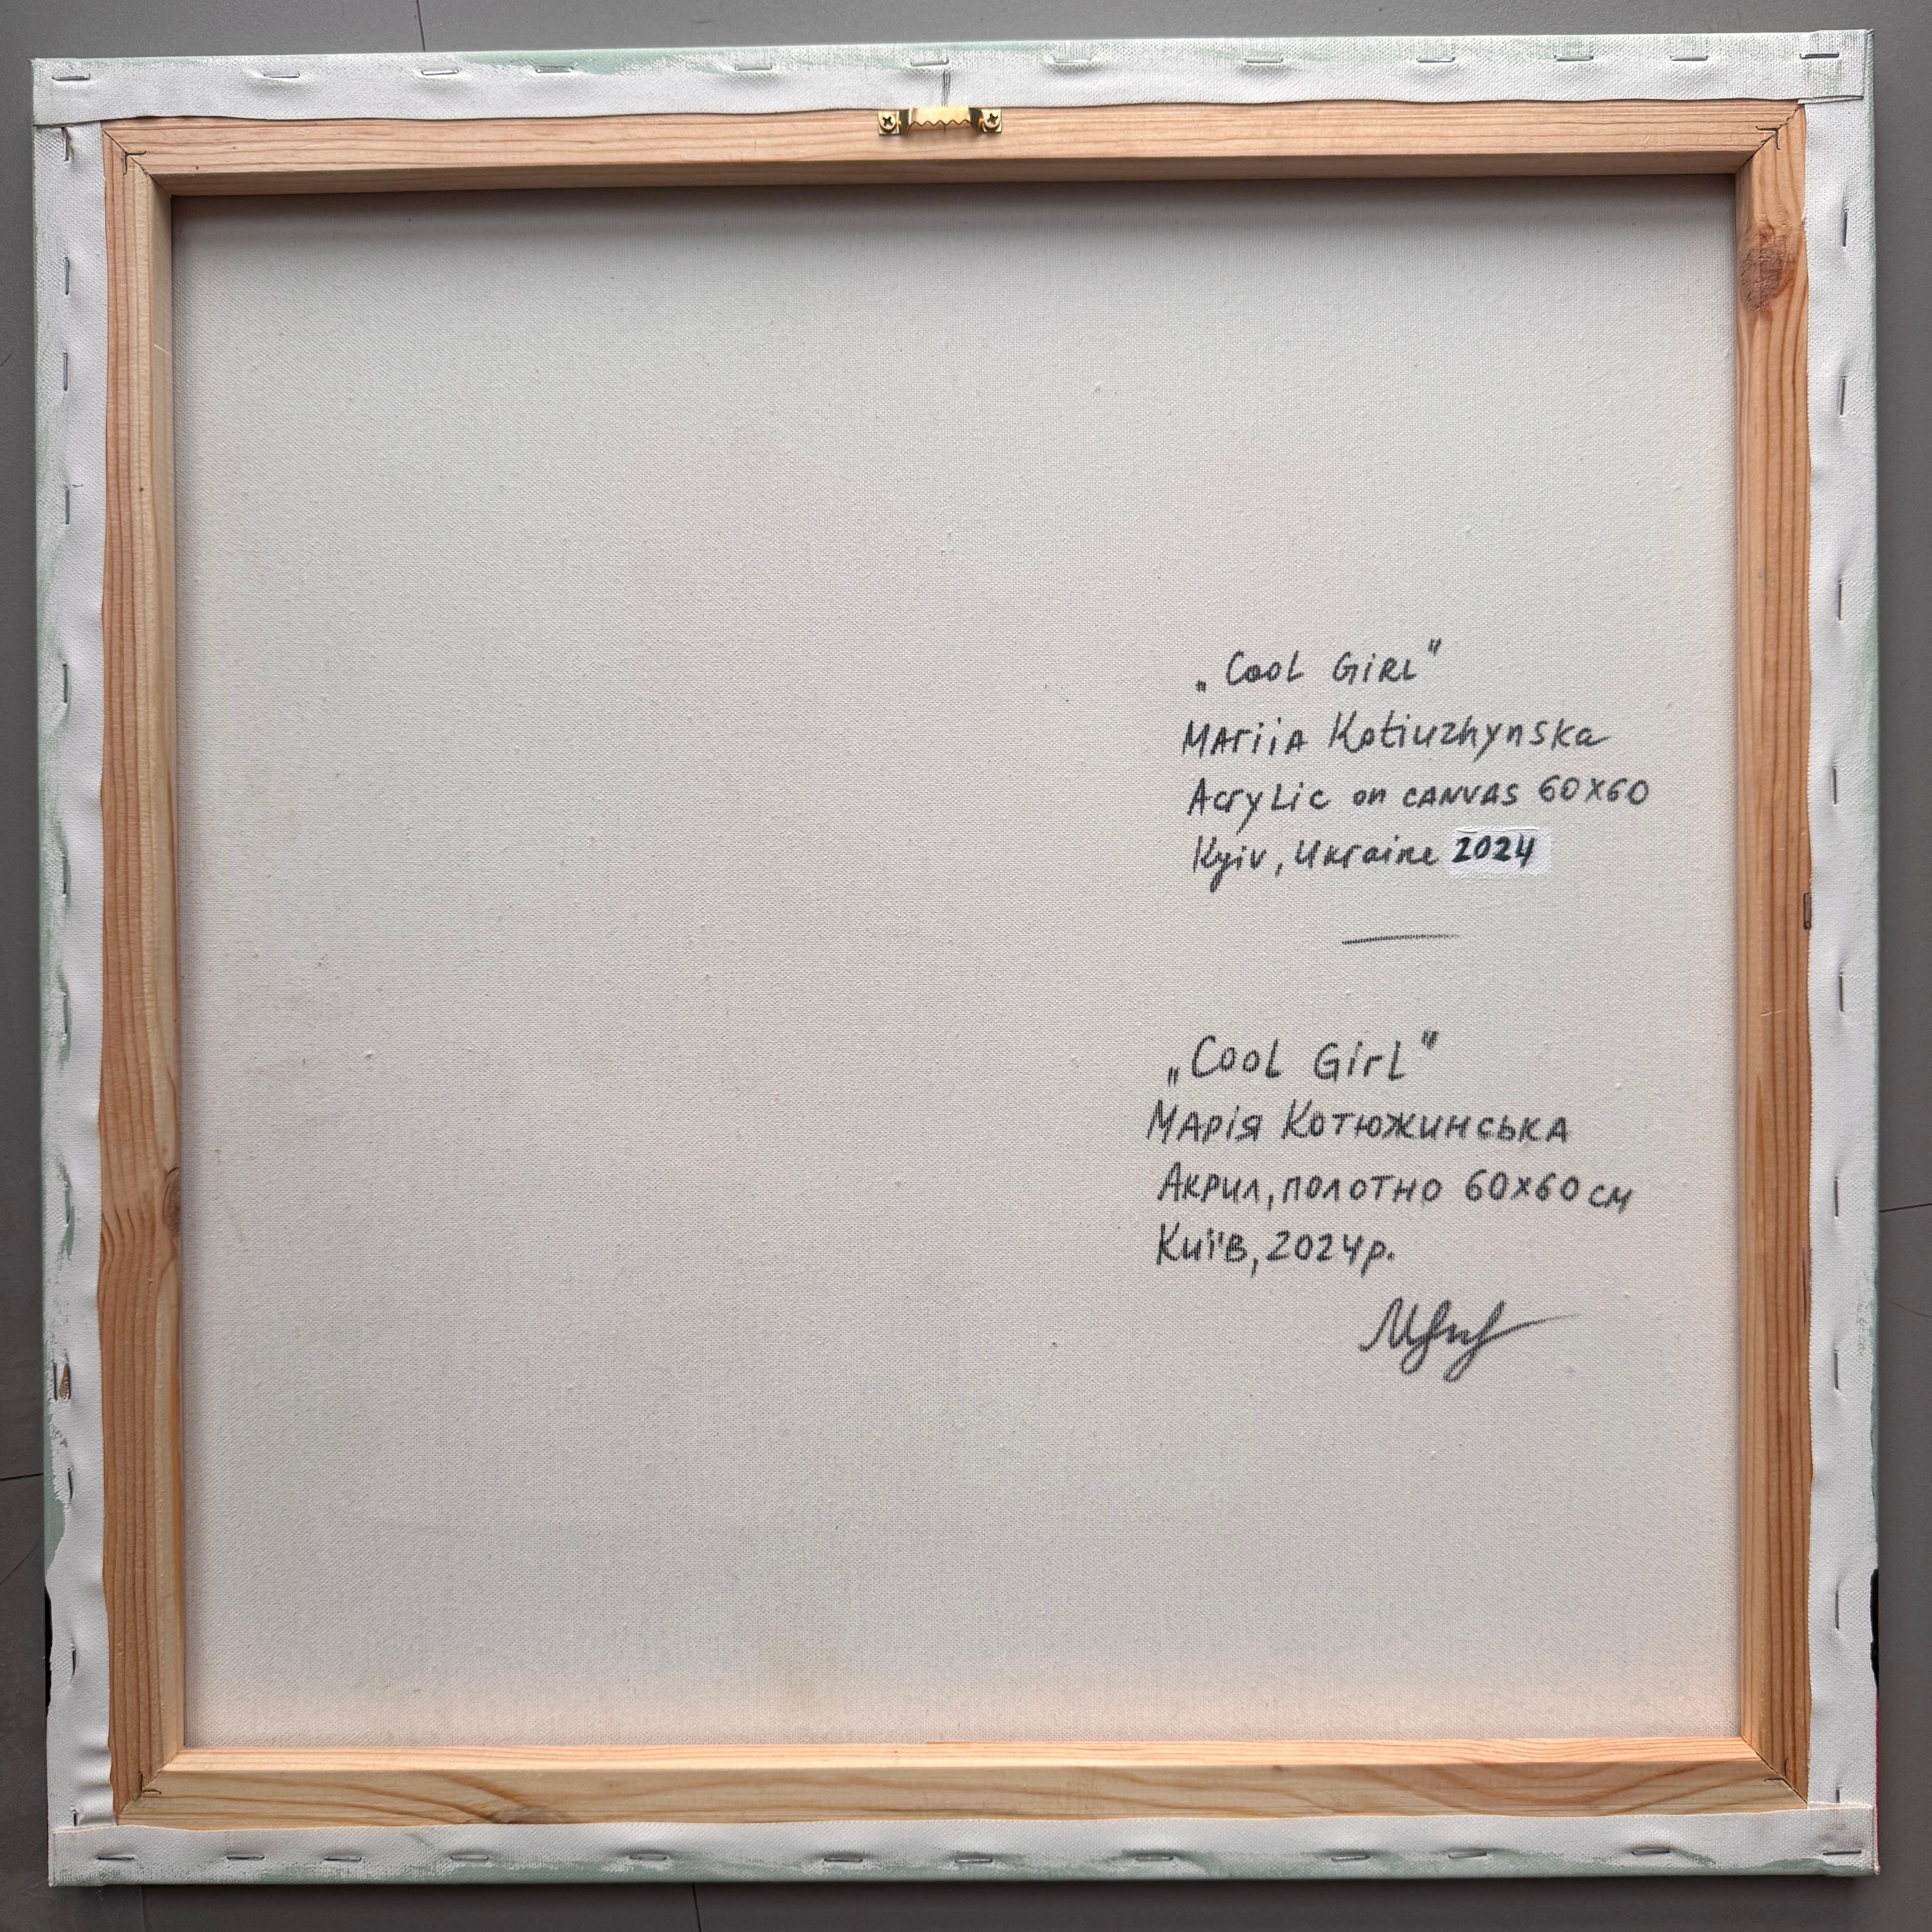 „Cool Girl"
Mariia Kotiuzhynska
Acrylic on canvas 60x60
Kyiv, Ukraine 2024
„Cool Girl"
Марія Котюжинська
Акрил, полотно 60x60 см
Київ, 2024р.